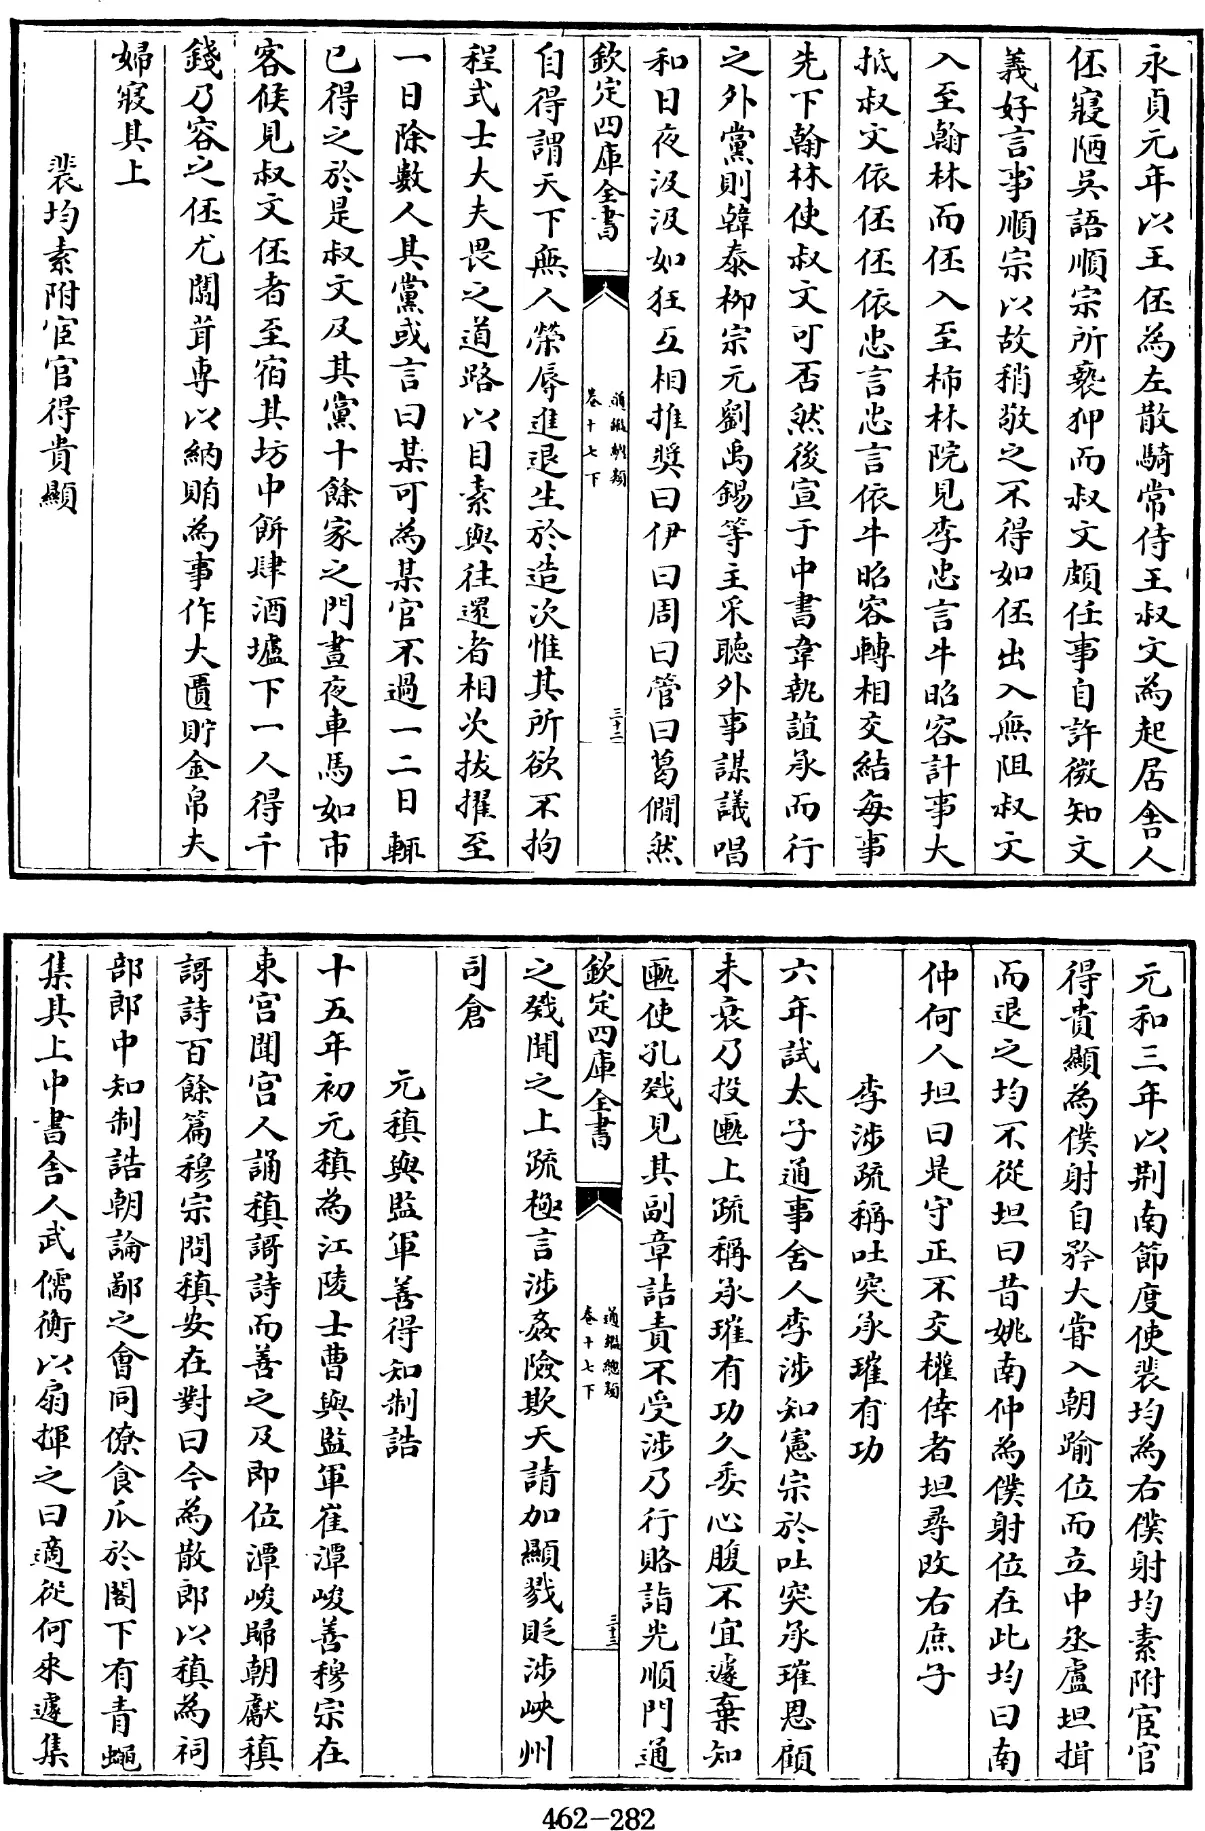 永貞元年以王伾為左散騎常侍王叔文為起居舍人
伾寢陋吳語順宗所褻狎而叔文頗任事自許微知文
義好言事順宗以故稍敬之不得如伾出入無阻叔文
入至翰林而伾入至柿林院見李忠言牛昭容計事大
抵叔文依伾伾依忠言忠言依牛昭容轉相交結每事
先下翰林使叔文可否然後宣于中書韋執誼承而行
之外黨則韓泰柳宗元劉禹錫等主采聽外事謀議唱
和日夜汲汲如狂互相推奬曰伊曰周曰管曰葛僩然
欽定四庫全書
通鑑總類
卷十七下
三十二
自得謂天下無人榮辱進退生於造次惟其所欲不拘
程式士大夫畏之道路以目素與往還者相次拔擢至
一日除數人其黨或言曰某可為某官不過一二日輒
已得之於是叔文及其黨十餘家之門晝夜車馬如市
客候見叔文伾者至宿其坊中餅肆酒壚下一人得千
錢乃容之伾尤闒茸專以納賄為事作大匱貯金帛夫
婦寢其上
裴均素附宦官得貴顯
元和三年以荆南節度使裴均為右僕射均素附宦官
得貴顯為僕射自矜大嘗入朝踰位而立中丞盧坦揖
而退之均不從坦曰昔姚南仲為僕射位在此均曰南
仲何人坦曰是守正不交權倖者坦尋改右庶子
李涉疏稱吐突承璀有功
六年試太子通事舍人李涉知憲宗於吐突承璀恩顧
未衰乃投匭上疏稱承璀有功久委心腹不宜遽棄知
匭使孔戣見其副章詰責不受涉乃行賂詣光順門通
欽定四庫全書
通鑑總類
卷十七下
三十三
之戣聞之上疏極言涉姦險欺天請加顯戮貶涉峽州
司倉
元稹與監軍善得知制誥
十五年初元稹為江陵士曹與監軍崔潭峻善穆宗在
東宮聞宮人誦稹謌詩而善之及即位潭峻歸朝獻稹
謌詩百餘篇穆宗問稹安在對曰今為散郎以稹為祠
部郎中知制誥朝論鄙之會同僚食瓜於閣下有青蠅
集其上中書舍人武儒衡以扇揮之曰適從何來遽集
462-282